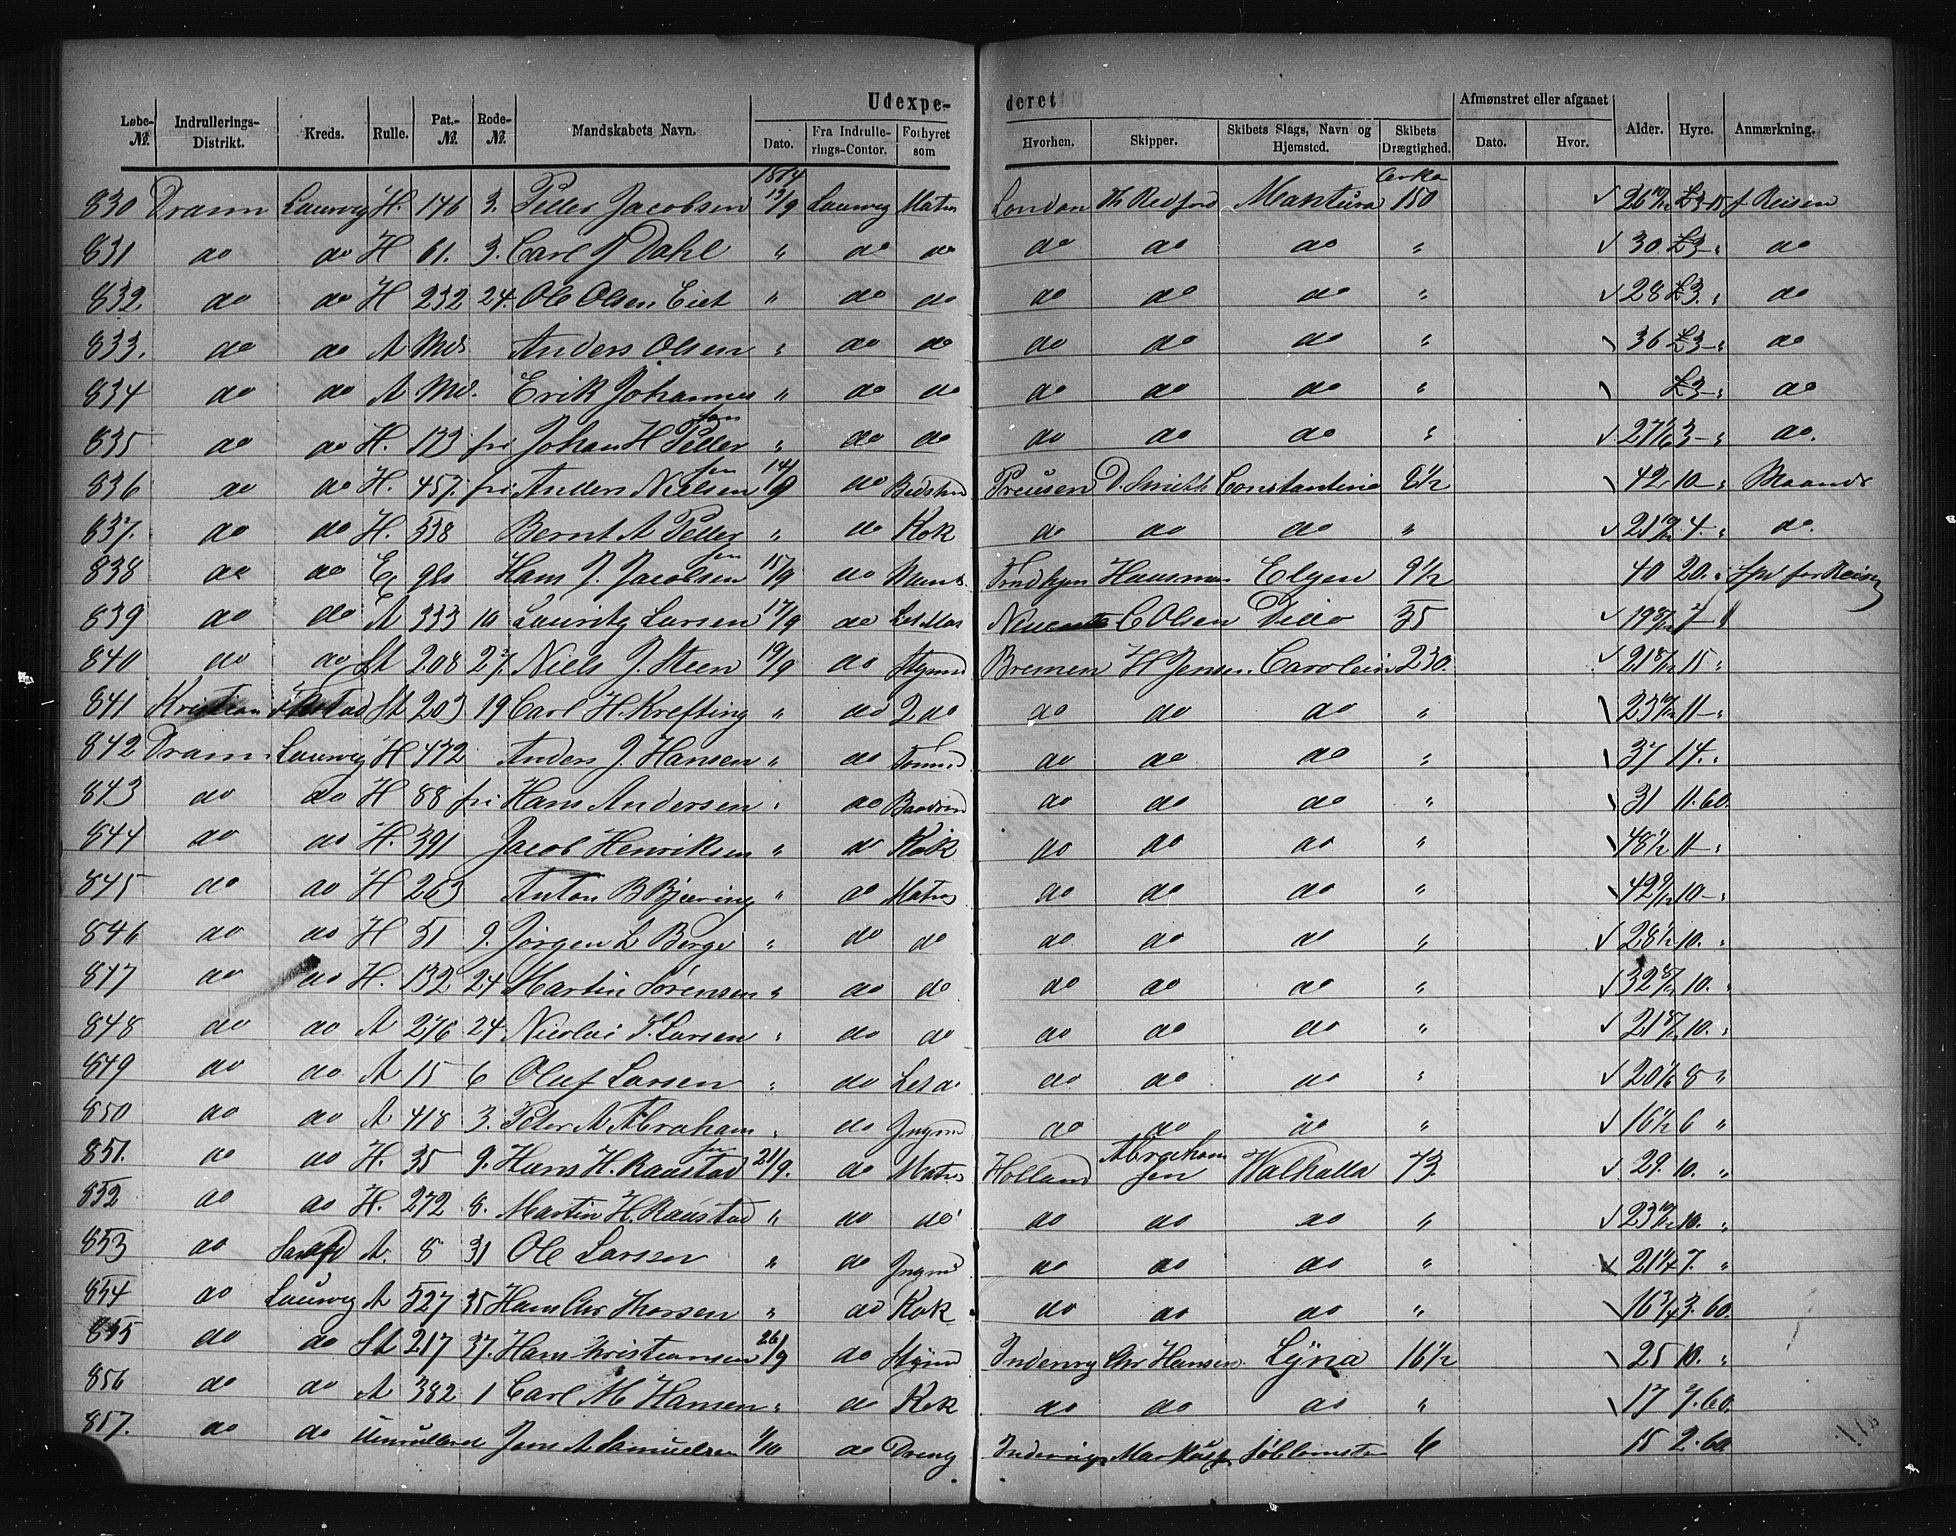 Udexpe- deret
Løbe-№. Indrullerings-Distrikt. Kreds. Rulle. Pat.-№. Rode-№. Mandskabets Navn. Dato. Fra Indrullerings-Contor. Forhyret som Hvorhen. Skipper. Skibets Slags, Navn og Hjemsted. Skibets Drægtighed. Afmønstret eller afgaaet Dato. Hvor. Alder. Hyre. Anmærkning.
1874
830 Dram Laurvig H. 146 3. Peder Jacobsen 13/9 Laurvig Matr London Th Redford Mantura 150 £3-15 f. Reisen
831 do do H 61. 3. Carl J Dahl " do do do do do " 30. £3- do
832. do do H 232 24. Ole Olsen Eiet " do do do do do " 28 £3. do
833. do do A Md. Anders Olsen " do do do do do " 36 £3- do
834 do do A Md. Erik Johannessen " do do do do do " £3- do
835 do do H. 123 fri Johan H Pedersen " do do do do do " 3- do.
836 do do H. 457. fri Anders Nielsen 14/9 do Bedstmd Preusen D. Smith Constantine 8 1/2 42. 10- Maaned
837. do do H. 538 Bernt A Pedersen " do Kok do do do " 4. do.
838 do do E gls Hans J. Jacobsen 15/9 do Trndhjem Hausman Elgen 9 1/2 40 20. for Reisen
839 do do A 333 10 Lauritz Larsen 17/9 do C Olsen 35 7
840 do do St 208 27. Niels J. Steen 19/9 do Styrmd Bremen H Jensen Carolein 230. 15
841 Kristian St 203 19 Carl H. Krefting " do 2 do do do do " 11-
842 Dram. Laurvig H 472 Anders J. Hansen " do Tømmd do do do " 37 14.
843 do do H 88 fri Hans Andersen " do do do do " 31 11.60.
844 do do H. 391 Jacob Henriksen " do Kok do do do " 48 1/2 11-
845 do do H 263 Anton B Bjerring " do Matr do do do " 10-
846 do do H 51 9. Jørgen L Berge " do do do do do " 28 1/2 10.
847 do do H. 132 24 Martin Sørensen " do do do do do " 10.
848 do do A 276 24 Nicolai T. Larsen " do do do do do " 10.
849 do do A 15 6 Oluf Larsen " do Let do do do do " 20 1/6 8 "
850 do do A 418 3. Peter A Abrahamsen " do Jngmd do do do 16 1/2 6 "
851. do do H. 35 9. Hans H. Raastad 21/9. do Matr Holland Abrahamsen Walhalla 73 29. 10. "
852 do do H. 272 8. Martin H. Raastad " do do do do do " 10. "
853 do Sandfd A. 8 31 Ole Larsen " do Jngmd do do do " 21 1/4 7. "
854 do Laurvig A 527 35 Hans Chr Thorsen " do Kok do do do " 16 3/4 3.60.
855 do do St 217 37. Hans Kristiansen 26/9 do Styrmd Indenrig Chr Hansen Lyna 16 1/2 25 10. "
856 do do A 382 1 Carl M Hansen " do Kok do do do " 17 7.60.
857. do do Uenrulleret Jens A Samuelsen 1/10 do Dreng Indenrigs 6 15 2.60